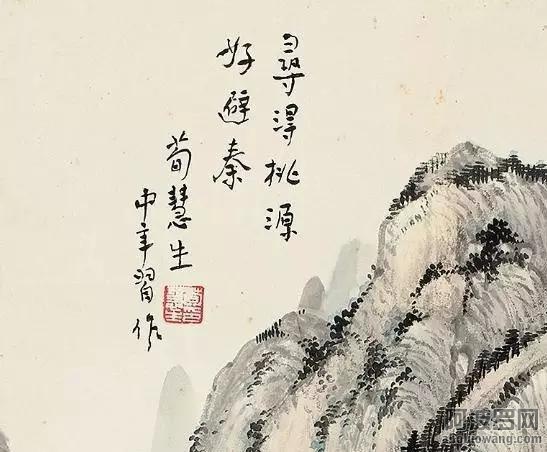 尋得桃源
好避秦
荀慧生
中年習作
阿波罗网
aboluowang.com